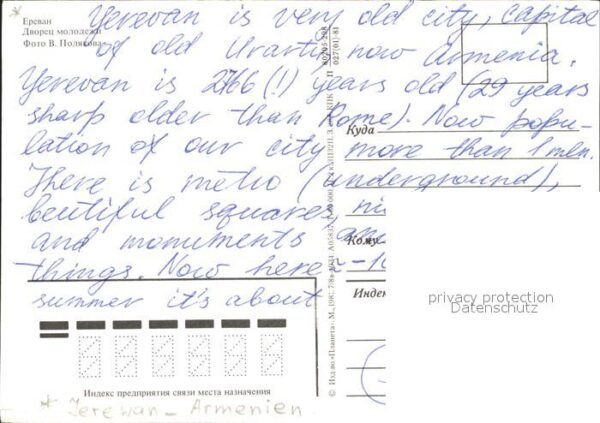 Ереван
Дворец молодежи
Фото В. Полякова
Yerevan is very old city, capital
of old Urartu, now Armenia.
Yerevan is 2766 (!) years old (29 years
sharp older than Rome). Now popu-
lation of our city more than 1 mln.
There is metro (underground),
beutiful squares,
and monuments
things. Now here
summer it's about
Куда
Кому
Индек
privacy protection
Datenschutz
Индекс предприятия связи места назначения
* Jerewan - Armenien
© Изд-во «Планета». М., 198